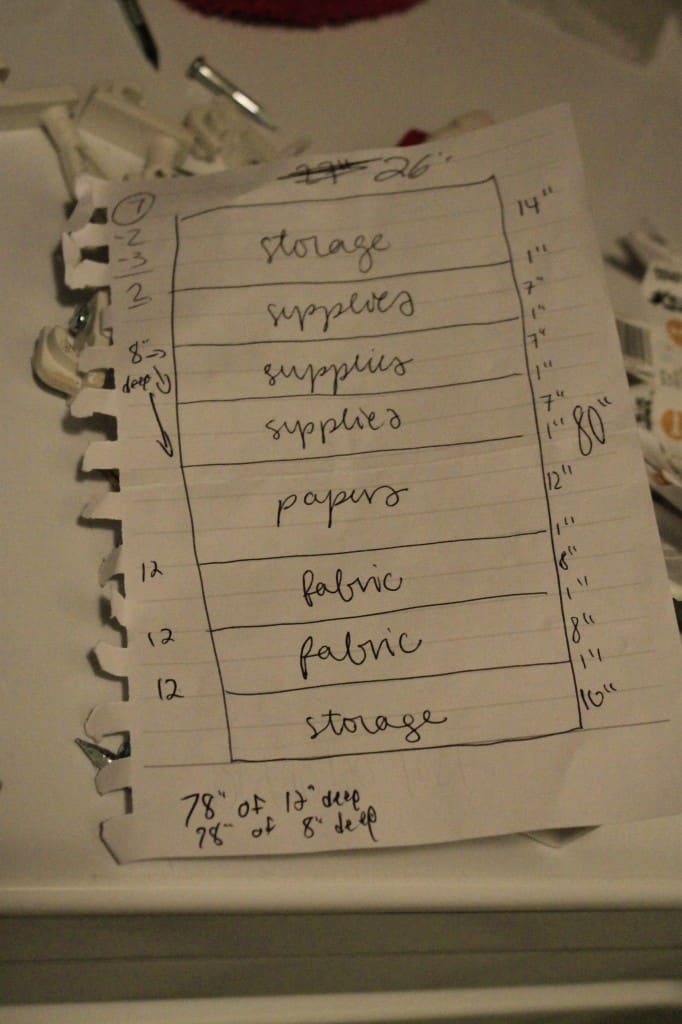 27" 26"
7
-2
-3
2
14"
storage
1"
7"
supplies
1"
8"
deep
7"
supplies
1"
7"
supplies
1"
80"
12"
papers
1"
12
8"
fabric
1"
12
8"
fabric
1"
12
10"
storage
78" of 12" deep
78" of 8" deep